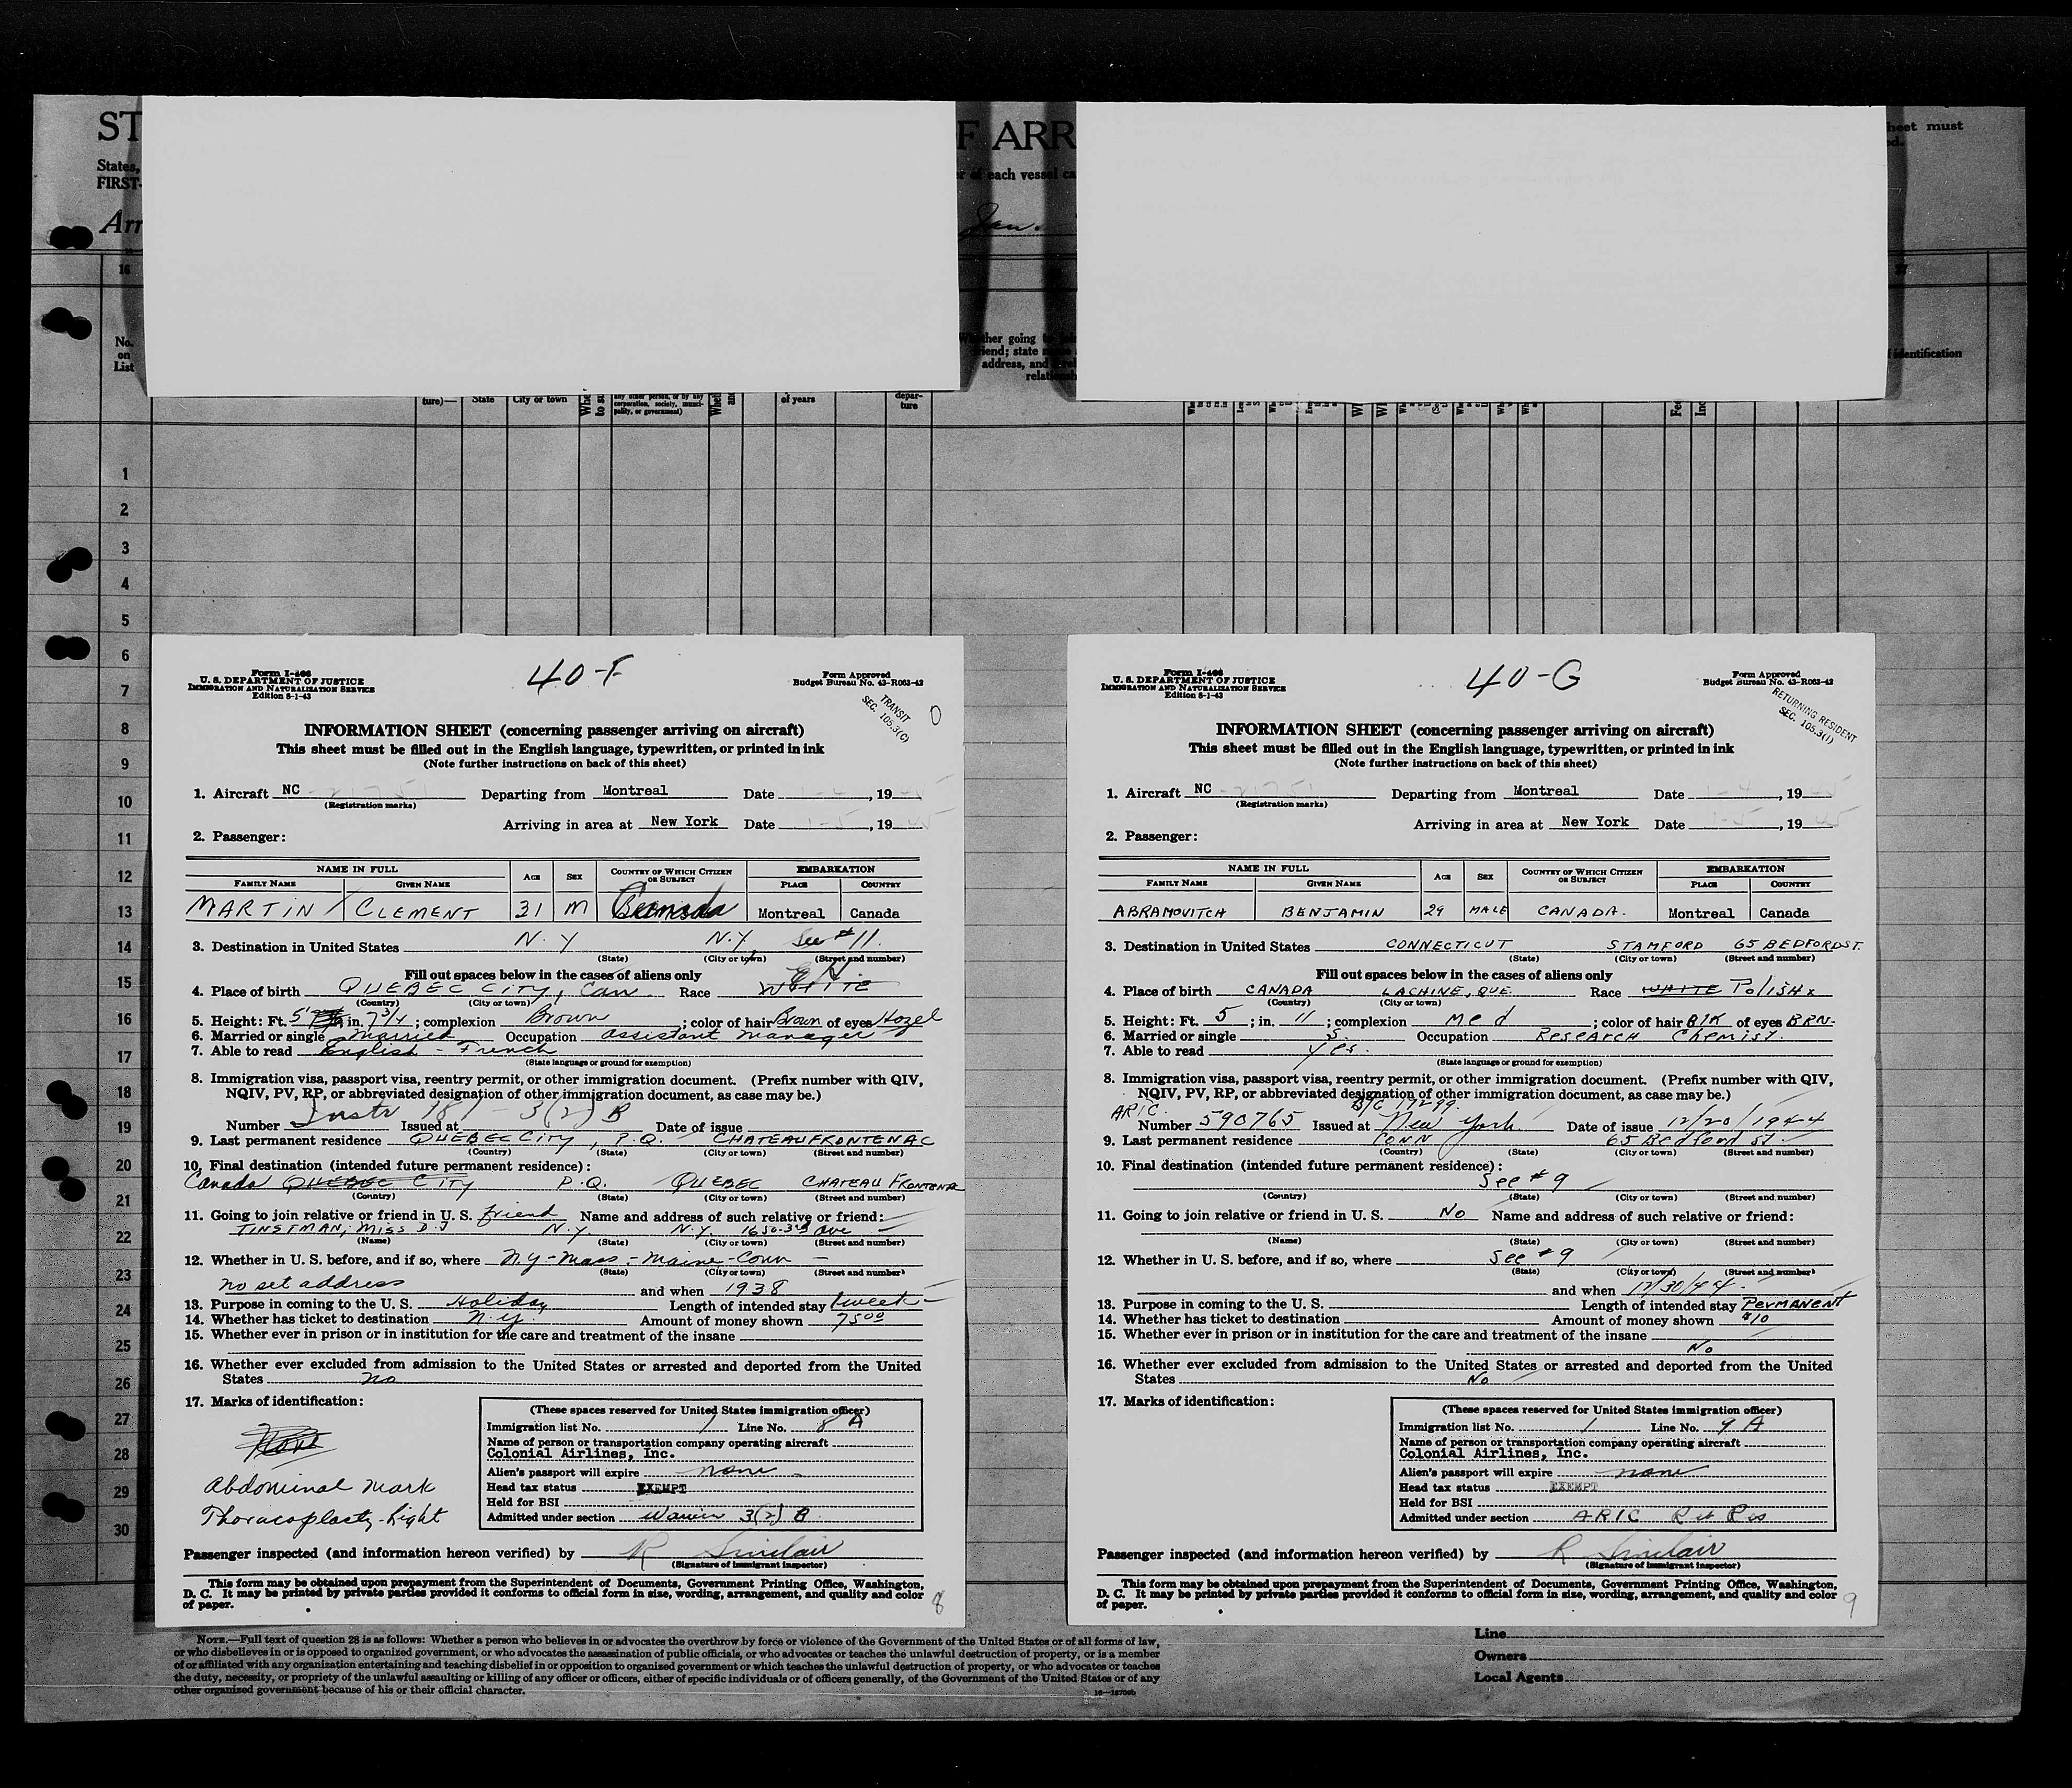 ST
F ARR
heet must
ed.
States,
of each vessel ca
FIRST-
Arr
Jan.
16
No.
on
List
friend; state
address, and
identification
ture)—
State
City or town
any other person, or by any
corporation, society, munici-
pality, or government)
of years
depar-
ture
1
2
3
4
5
6
7
8
9
10
11
12
13
14
15
16
17
18
19
20
21
22
23
24
25
26
27
28
29
30
Form I-466
U. S. DEPARTMENT OF JUSTICE
IMMIGRATION AND NATURALIZATION SERVICE
Edition 8-1-43
40-F
Form Approved
Budget Bureau No. 43-R063-42
TRANSIT
SEC. 105.3(C)
INFORMATION SHEET (concerning passenger arriving on aircraft)
This sheet must be filled out in the English language, typewritten, or printed in ink
(Note further instructions on back of this sheet)
1. Aircraft NC-21751 Departing from Montreal Date 1-4, 1945
(Registration marks)
Arriving in area at New York Date 1-5, 1945
2. Passenger:
NAME IN FULL AGE SEX COUNTRY OF WHICH CITIZEN OR SUBJECT EMBARKATION
FAMILY NAME GIVEN NAME PLACE COUNTRY
MARTIN CLEMENT 31 M Canada Montreal Canada
3. Destination in United States N.Y N.Y. See #11.
(State) (City or town) (Street and number)
Fill out spaces below in the cases of aliens only
4. Place of birth QUEBEC CITY, Can. Race WHITE
(Country) (City or town)
5. Height: Ft. 5 in. 7 3/4; complexion Brown; color of hair Brown of eyes Hazel
6. Married or single Married Occupation assistant manager
7. Able to read English - French
(State language or ground for exemption)
8. Immigration visa, passport visa, reentry permit, or other immigration document. (Prefix number with QIV,
NQIV, PV, RP, or abbreviated designation of other immigration document, as case may be.)
Number Instr 181 - 3(2) B Issued at Date of issue
9. Last permanent residence QUEBEC CITY, P.Q. CHATEAU FRONTENAC
(Country) (State) (City or town) (Street and number)
10. Final destination (intended future permanent residence):
Canada QUEBEC CITY P.Q. QUEBEC CHATEAU FRONTENAC
(Country) (State) (City or town) (Street and number)
11. Going to join relative or friend in U. S. friend Name and address of such relative or friend:
TINSTMAN, Miss D.J N.Y. N.Y. 1650-3rd Ave
(Name) (State) (City or town) (Street and number)
12. Whether in U. S. before, and if so, where N.Y - Mass - Maine - Conn
(State) (City or town) (Street and number)
no set address and when 1938
13. Purpose in coming to the U. S. Holiday Length of intended stay 1 week
14. Whether has ticket to destination N.Y. Amount of money shown 75 00
15. Whether ever in prison or in institution for the care and treatment of the insane
16. Whether ever excluded from admission to the United States or arrested and deported from the United
States no
17. Marks of identification:
Abdominal mark
Thoracoplasty-light
(These spaces reserved for United States immigration officer)
Immigration list No. 1 Line No. 8 A
Name of person or transportation company operating aircraft
Colonial Airlines, Inc.
Alien's passport will expire none
Head tax status EXEMPT
Held for BSI
Admitted under section Waiver 3(2) B
Passenger inspected (and information hereon verified) by R Sinclair
(Signature of immigrant inspector)
This form may be obtained upon prepayment from the Superintendent of Documents, Government Printing Office, Washington,
D. C. It may be printed by private parties provided it conforms to official form in size, wording, arrangement, and quality and color
of paper.
8
Form I-466
U. S. DEPARTMENT OF JUSTICE
IMMIGRATION AND NATURALIZATION SERVICE
Edition 8-1-43
40-G
Form Approved
Budget Bureau No. 43-R063-42
RETURNING RESIDENT
SEC. 105.3(I)
INFORMATION SHEET (concerning passenger arriving on aircraft)
This sheet must be filled out in the English language, typewritten, or printed in ink
(Note further instructions on back of this sheet)
1. Aircraft NC-21751 Departing from Montreal Date 1-4, 1945
(Registration marks)
Arriving in area at New York Date 1-5, 1945
2. Passenger:
NAME IN FULL AGE SEX COUNTRY OF WHICH CITIZEN OR SUBJECT EMBARKATION
FAMILY NAME GIVEN NAME PLACE COUNTRY
ABRAMOVITCH BENJAMIN 29 MALE CANADA. Montreal Canada
3. Destination in United States CONNECTICUT STAMFORD 65 BEDFORD ST.
(State) (City or town) (Street and number)
Fill out spaces below in the cases of aliens only
4. Place of birth CANADA LACHINE, QUE. Race WHITE POLISH x
(Country) (City or town)
5. Height: Ft. 5; in. 11; complexion Med; color of hair BLK of eyes BRN-
6. Married or single S. Occupation Research Chemist.
7. Able to read Yes.
(State language or ground for exemption)
8. Immigration visa, passport visa, reentry permit, or other immigration document. (Prefix number with QIV,
NQIV, PV, RP, or abbreviated designation of other immigration document, as case may be.)
ARIC. B/C 17299.
Number 590765 Issued at New York. Date of issue 12/20/1944
9. Last permanent residence CONN 65 Bedford St.
(Country) (State) (City or town) (Street and number)
10. Final destination (intended future permanent residence):
See #9
(Country) (State) (City or town) (Street and number)
11. Going to join relative or friend in U. S. No Name and address of such relative or friend:
(Name) (State) (City or town) (Street and number)
12. Whether in U. S. before, and if so, where See #9
(State) (City or town) (Street and number)
and when 12/30/44
13. Purpose in coming to the U. S. Length of intended stay PERMANENT
14. Whether has ticket to destination Amount of money shown $10
15. Whether ever in prison or in institution for the care and treatment of the insane
No
16. Whether ever excluded from admission to the United States or arrested and deported from the United
States No
17. Marks of identification:
(These spaces reserved for United States immigration officer)
Immigration list No. 1 Line No. 9 A
Name of person or transportation company operating aircraft
Colonial Airlines, Inc.
Alien's passport will expire none
Head tax status EXEMPT
Held for BSI
Admitted under section ARIC Ret Res
Passenger inspected (and information hereon verified) by R Sinclair
(Signature of immigrant inspector)
This form may be obtained upon prepayment from the Superintendent of Documents, Government Printing Office, Washington,
D. C. It may be printed by private parties provided it conforms to official form in size, wording, arrangement, and quality and color
of paper.
9
NOTE.—Full text of question 28 is as follows: Whether a person who believes in or advocates the overthrow by force or violence of the Government of the United States or of all forms of law,
or who disbelieves in or is opposed to organized government, or who advocates the assassination of public officials, or who advocates or teaches the unlawful destruction of property, or is a member
of or affiliated with any organization entertaining and teaching disbelief in or opposition to organized government or which teaches the unlawful destruction of property, or who advocates or teaches
the duty, necessity, or propriety of the unlawful assaulting or killing of any officer or officers, either of specific individuals or of officers generally, of the Government of the United States or of any
other organized government because of his or their official character.
Line
Owners
Local Agents